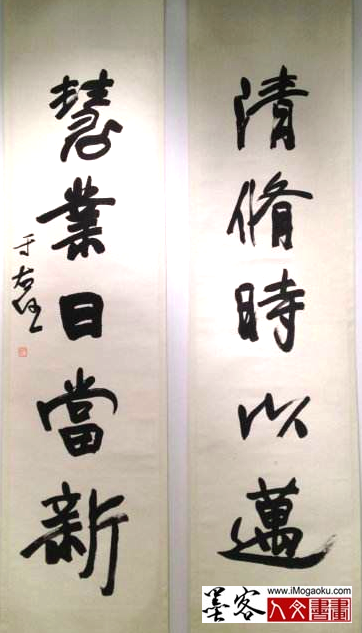 清脩時以邁
慧業日當新
于右任
墨客
www.iMogaoku.com
人文書畫